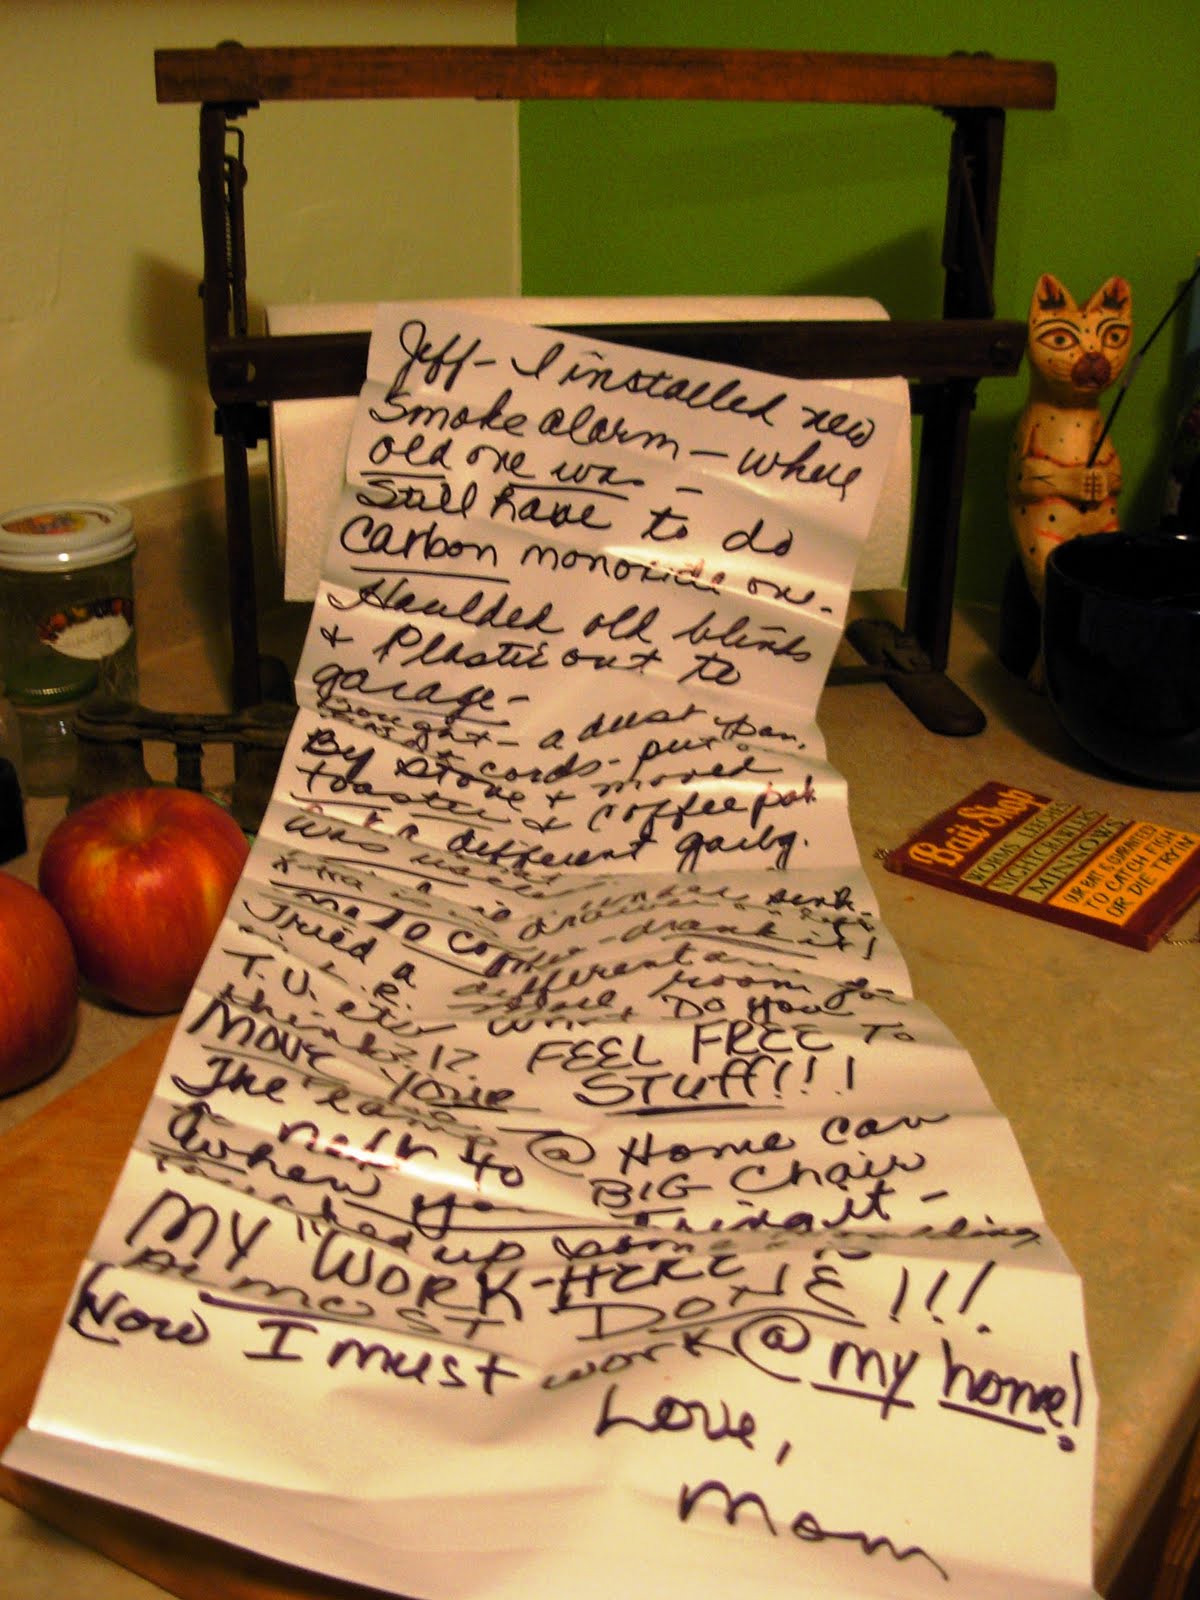 Jeff - I installed new
Smoke alarm - where
old one was -
Still have to do
carbon monoxide one.
Haulded old blinds
& Plastic out to
garage -
bought - a dust pan.
cords - put
By stove & moved
toaster & coffee pot
different
was
under sink -
drawer on left
coffee - drank it!
Tried a different
room for
T.V. etc. What Do You
think?!? FEEL FREE TO
MOVE YOUR STUFF!!!
The @ Home can
to BIG Chair
when you bring it -
up some
MY WORK - HERE IS
ALMOST DONE!!!
Now I must work @ my home!
Love,
Mom
Bait Shop
WORMS LEECHES
NIGHTCRAWLERS
MINNOWS
OUR BAIT IS GUARANTEED
TO CATCH FISH
OR DIE TRYIN'